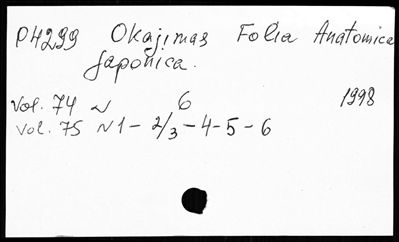 P4299 Okajimas Folia Anatomica
Japonica.
Vol. 74 N 6 1998
Vol. 75 N 1 - 2/3 - 4 - 5 - 6